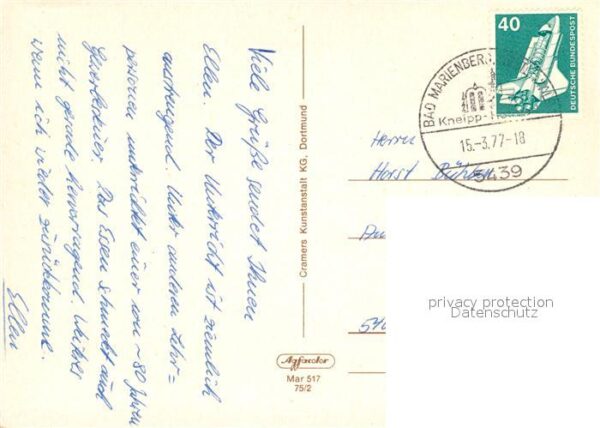 Viele Grüße sendet Ihnen
Ellen. Der Unterricht ist ziemlich
anstrengend. Unter anderem Lehr=
personen unterrichtet einer von ~ 80 Jahren
Das Essen schmeckt auch
nicht gerade hervorragend. Weiteres
wenn ich wieder zurückkomme.
Ellen
Cramers Kunstanstalt KG, Dortmund
Agfacolor
Mar 517
75/2
40
DEUTSCHE BUNDESPOST
BAD MARIENBERG
Kneipp-
15.-3.77-18
5439
Herrn
Horst
privacy protection
Datenschutz